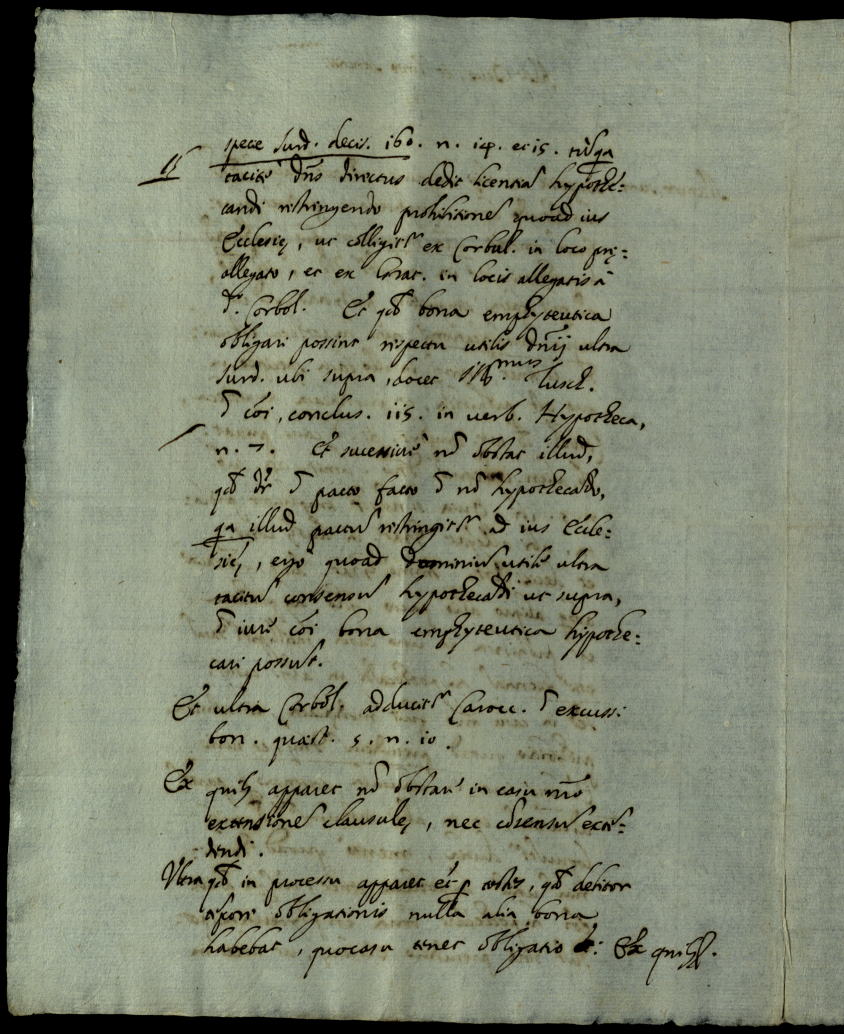 spece Surd. decis. 160. n. 14. et 15.
tacite dñs directus dedit licentiã hypothe=
candi restringendo prohibitionẽ quoad ius
Ecclesię, ut colligit^r ex Corbul. in loco prę=
allegato, et ex in locis allegatis à
D. Corbol. Et qđ bona emphyteutica
obligari possint respectu utilis dñij ultra
Surd. ubi supra, docet Ill^mus Tusch.
cõi, conclus. 115. in verb. Hypotheca,
n. 7. Et sucessive nõ obstat illud,
qđ dr̃ pacto facto nõ hypothecãdo,
qa illud pactũ restringit^r ad ius Eccle=
się, ergo quoad dominiũ utile ultra
tacitũ consensũ hypothecãdi ut supra,
iure cõi bona emphyteutica hypothe=
cari possũt.
Et ultra Corbol. adducit^r Carocc. excuss:
bon. quæst. 5. n. 10.
Ex quib apparet nõ obstare in casu nr̃o
extensionẽ clausulę, nec cõsensũ extẽ=
dendi.
Ultra qđ in processu apparet et p testes, qđ debitor
tẽpore obligationis nulla alia bona
habebat, quo casu tenet obligatio Ex quib.